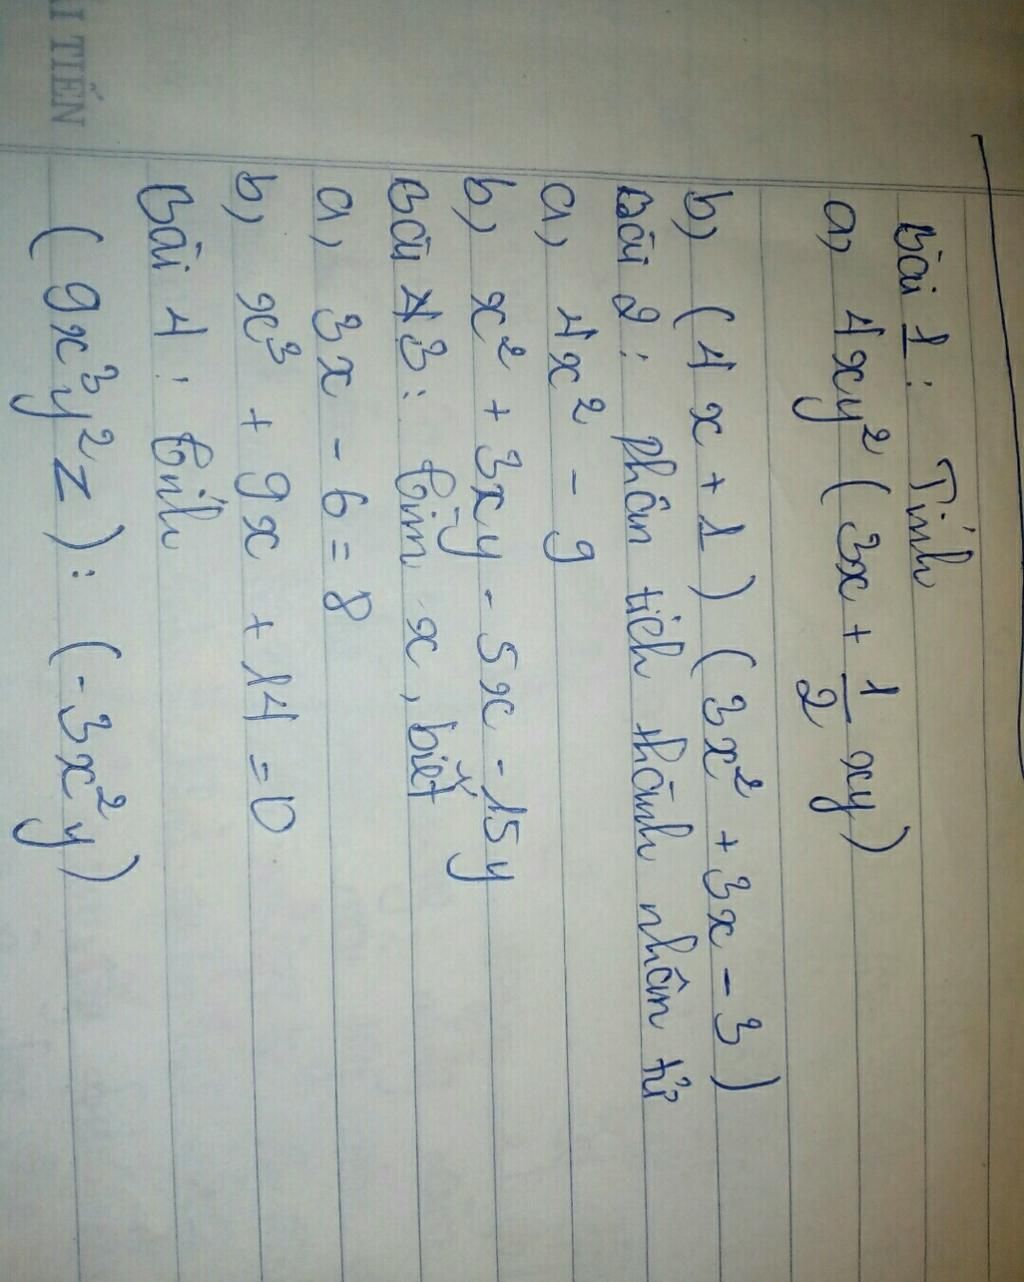 ẢI TIẾN
Bài 1: Tính
a, 4xy² (3x + 1/2 xy)
b, (4x + 1) (3x² + 3x - 3)
Bài 2: phân tích thành nhân tử
a, 4x² - 9
b, x² + 3xy - 5x - 15y
Bài 3: tìm x, biết
a, 3x - 6 = 8
b, x³ + 9x + 14 = 0
Bài 4: tính
(9x³y²z) : (-3x²y)